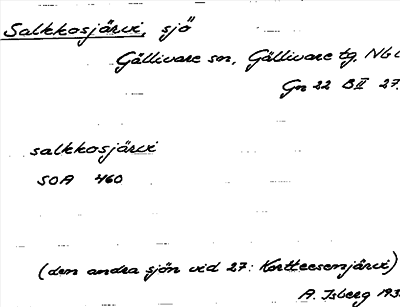 Salkkosjärvi, sjö
Gällivare sn, Gällivare tg, Nb l
Gn 22 B II 27.
salkkosjärvi
SOA 460
(den andra sjön vid 27: Kortteesenjärvi)
A. Isberg 193